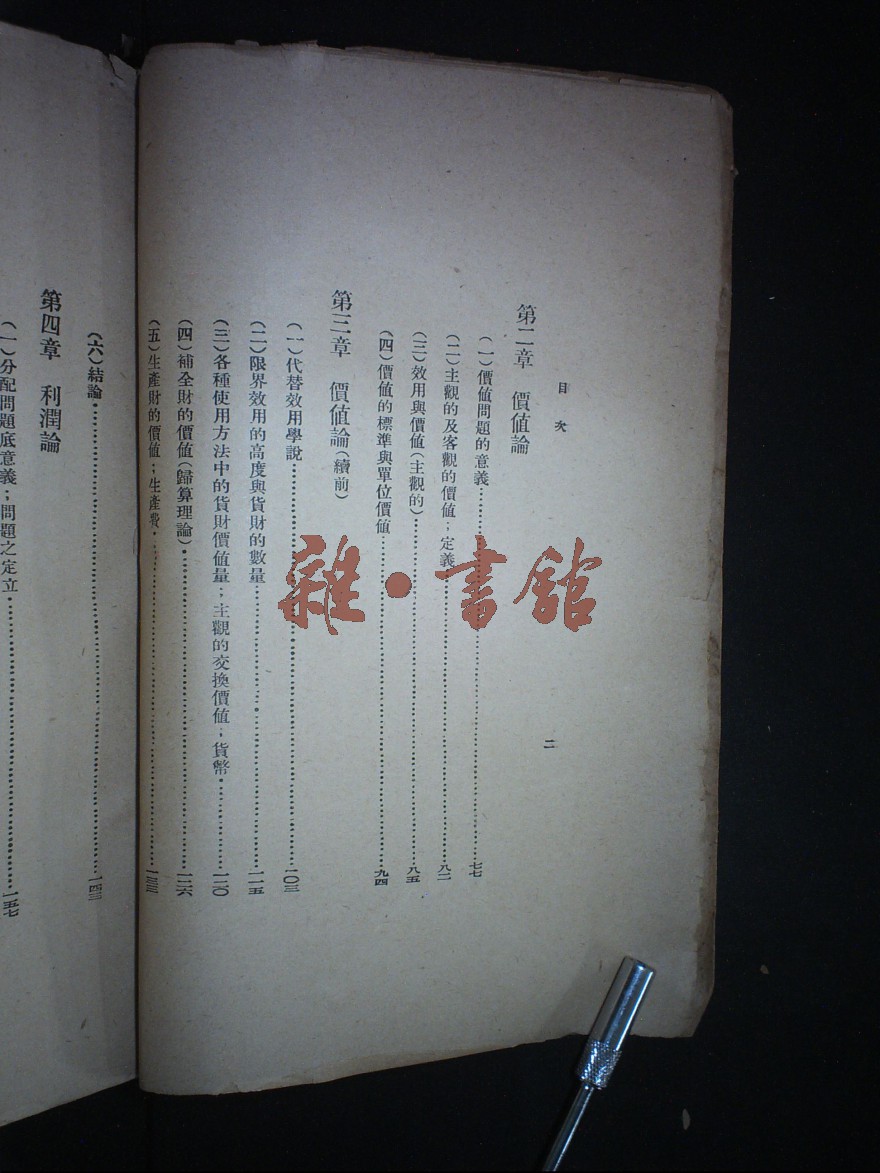 目次
二
第二章　價値論
(一)價値問題的意義……七七
(二)主觀的及客觀的價値；定義……八二
(三)效用與價値(主觀的)……八五
(四)價値的標準與單位價値……九四
第三章　價値論(續前)
(一)代替效用學說……一〇三
(二)限界效用的高度與貨財的數量……一一五
(三)各種使用方法中的貨財價値量；主觀的交換價値；貨幣……一二〇
(四)補全財的價値(歸算理論)……一二六
(五)生產財的價値；生產費……一三三
(六)結論……一四三
第四章　利潤論
(一)分配問題底意義；問題之定立……一五七
雜·書館